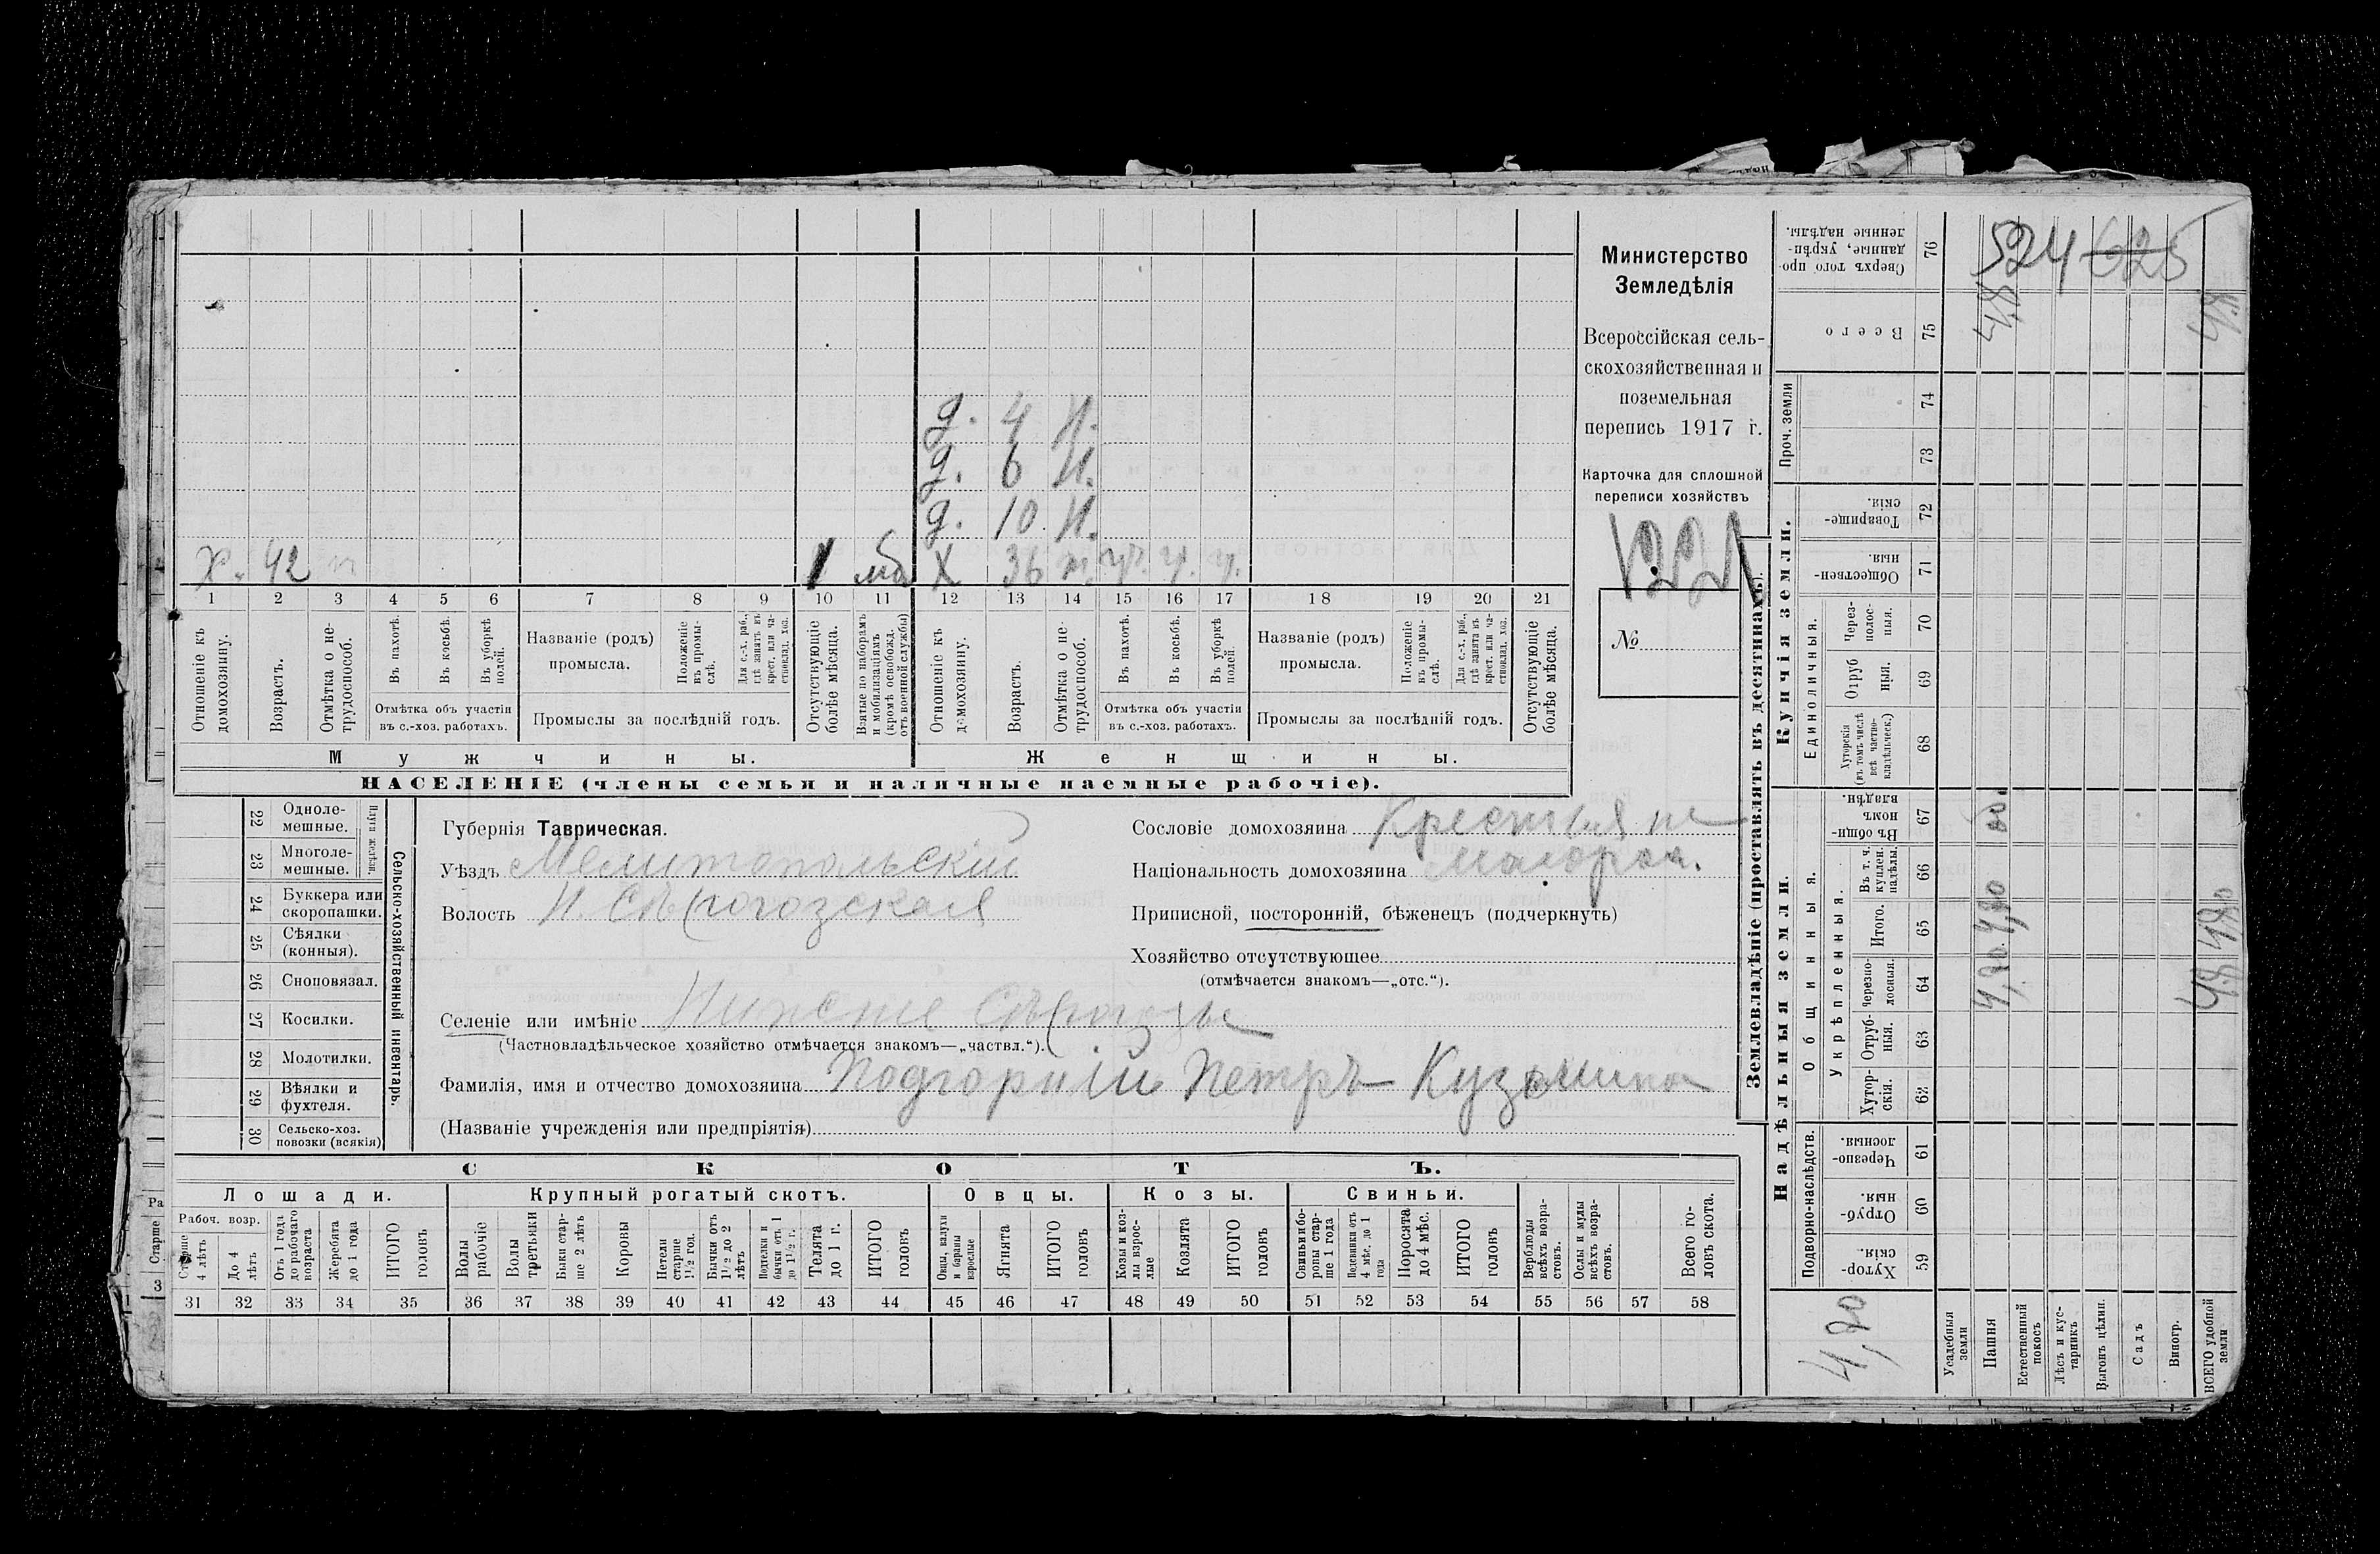 д. 4 н.
д. 6 н.
д. 10 н.
х. 42 1 мб х 36
1 2 3 4 5 6 7 8 9 10 11 12 13 14 15 16 17 18 19 20 21
Отношеніе къ домохозяину.
Возрастъ.
Отмѣтка о не-трудоспособ.
Въ пахотѣ.
Въ косьбѣ.
Въ уборкѣ полей.
Отмѣтка объ участіи въ с.-хоз. работахъ.
Названіе (родъ) промысла.
Положеніе въ промы-слѣ.
Для с.-х. раб., гдѣ занятъ въ крест. или ча-стновлад. хоз.
Промыслы за послѣдній годъ.
Отсутствующіе болѣе мѣсяца.
Взятые по наборамъ и мобилизаціямъ (кромѣ освобожд. отъ военной службы)
Отношеніе къ домохозяину.
Возрастъ.
Отмѣтка о не-трудоспособ.
Въ пахотѣ.
Въ косьбѣ.
Въ уборкѣ полей.
Отмѣтка объ участіи въ с.-хоз. работахъ.
Названіе (родъ) промысла.
Положеніе въ промы-слѣ.
Для с.-х. раб., гдѣ занята въ крест. или ча-стновлад. хоз.
Промыслы за послѣдній годъ.
Отсутствующіе болѣе мѣсяца.
Мужчины. Женщины.
НАСЕЛЕНІЕ (члены семьи и наличные наемные рабочіе).
Министерство
Земледѣлія
Всероссійская сель-
скохозяйственная и
поземельная
перепись 1917 г.
Карточка для сплошной
переписи хозяйствъ
№
22 Одноле-мешные.
23 Многоле-мешные.
Плуги желѣзн.
24 Буккера или скоропашки.
25 Сѣялки (конныя).
26 Сноповязал.
27 Косилки.
28 Молотилки.
29 Вѣялки и фухтеля.
30 Сельско-хоз. повозки (всякія)
Сельско-хозяйственный инвентарь.
Губернія Таврическая.
Уѣздъ Мелитопольскій
Волость Н. Сѣрогозская
Сословіе домохозяина Крестьяне
Національность домохозяина малорос.
Приписной, посторонній, бѣженецъ (подчеркнуть)
Хозяйство отсутствующее
(отмѣчается знакомъ—„отс.“).
Селеніе или имѣніе Нижніе Сѣрогозы
(Частновладѣльческое хозяйство отмѣчается знакомъ—„частвл.“).
Фамилія, имя и отчество домохозяина Подгорній Петръ Кузьмина
(Названіе учрежденія или предпріятія)
СКОТЪ.
Лошади. Крупный рогатый скотъ. Овцы. Козы. Свиньи.
Рабоч. возр.
Старше 4 лѣтъ
До 4 лѣтъ
Отъ 1 года до рабочаго возраста
Жеребята до 1 года
ИТОГО головъ
Волы рабочіе
Волы третьяки
Быки стар-ше 2 лѣтъ
Коровы
Нетели старше 1½ год.
Бычки отъ 1½ до 2 лѣтъ
Подтелки и бычки отъ 1 до 1½ г.
Телята до 1 г.
ИТОГО головъ
Овцы, валухи и бараны взрослые
Ягнята
ИТОГО головъ
Козы и коз-лы взрос-лые
Козлята
ИТОГО головъ
Свиньи и бо-ровы стар-ше 1 года
Подсвинки отъ 4 мѣс. до 1 года
Поросята до 4 мѣс.
ИТОГО головъ
Верблюды всѣхъ возра-стовъ.
Ослы и мулы всѣхъ возра-стовъ.
Всего го-ловъ скота.
31 32 33 34 35 36 37 38 39 40 41 42 43 44 45 46 47 48 49 50 51 52 53 54 55 56 57 58
Землевладѣніе (проставлять въ десятинахъ).
Надѣльныя земли. Купчія земли.
Подворно-наслѣдств.
Общинныя.
Укрѣпленныя.
Единоличныя.
Проч. земли
Хутор-скія. 59
Отруб-ныя. 60
Черезпо-лосныя. 61
Хутор-скія. 62
Отруб-ныя. 63
Черезпо-лосныя. 64
Итого. 65
Въ т. ч. куплен. надѣлы. 66
Въ общин-номъ владѣн. 67
Хуторскія (въ томъ числѣ всѣ частно-владѣльческ.) 68
Отруб ныя. 69
Через-полос-ныя. 70
Обществен-ныя. 71
Товарище-скія. 72
73
74
Всего 75
Сверхъ того про-данные, укрѣп-ленные надѣлы. 76
524 625
Усадебныя земли
Пашня
Естественный покосъ
Лѣсъ и кус-тарникъ
Выгонъ цѣлин.
Садъ
Виногр.
ВСЕГО удобной земли